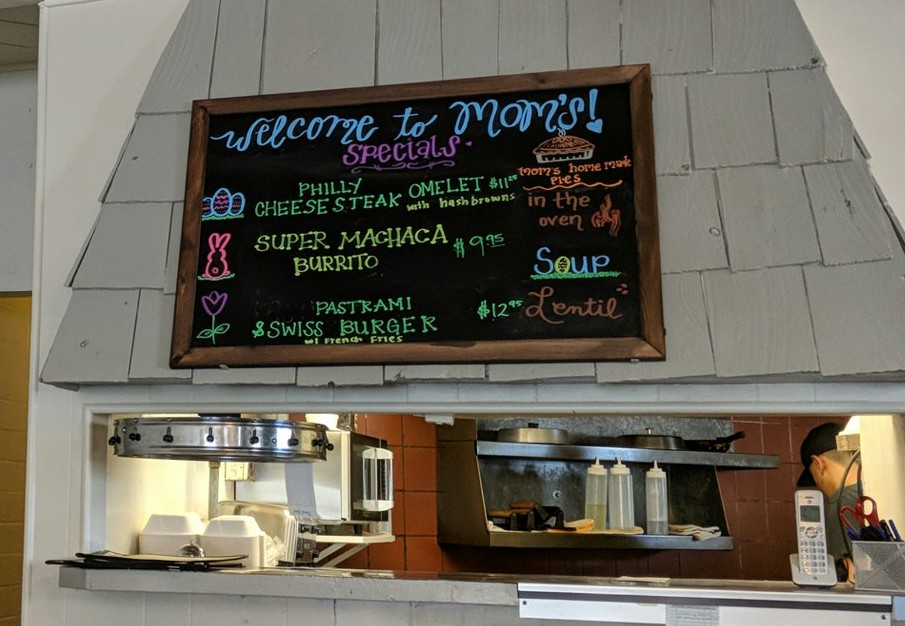 Welcome to Mom's!
Specials
PHILLY
CHEESESTEAK OMELET $11.25
with hashbrowns
SUPER MACHACA
BURRITO $9.95
PASTRAMI
& SWISS BURGER $12.95
w/ French Fries
mom's home made
PIES
in the
oven
Soup
Lentil